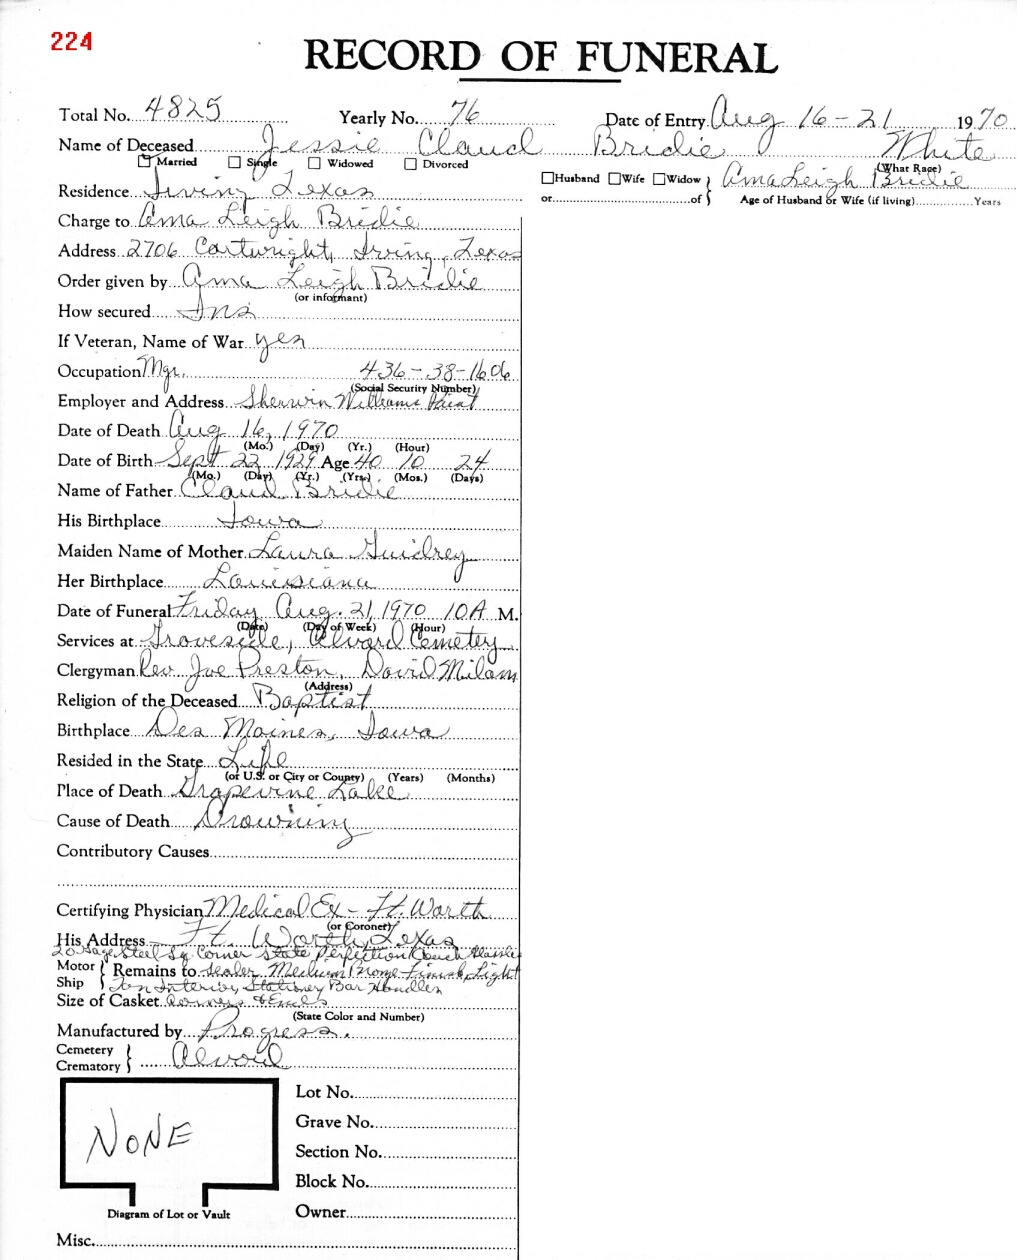 224
RECORD OF FUNERAL
Total No. 4825 Yearly No. 76 Date of Entry Aug 16-21 1970
Name of Deceased Jessie Claud Bridie White
Married Single Widowed Divorced (What Race)
Residence Irving Texas Husband Wife Widow Ama Leigh Bridie
or of Age of Husband or Wife (if living) Years
Charge to Ama Leigh Bridie
Address 2706 Cartwright, Irving, Texas
Order given by Ama Leigh Bridie
(or informant)
How secured Ins
If Veteran, Name of War yes
Occupation Mgr. 436-38-1606
(Social Security Number)
Employer and Address Sherwin Williams Paint
Date of Death Aug 16, 1970
(Mo.) (Day) (Yr.) (Hour)
Date of Birth Sept 22 1929 Age 40 10 24
(Mo.) (Day) (Yr.) (Yrs.) (Mos.) (Days)
Name of Father Claud Bridie
His Birthplace Iowa
Maiden Name of Mother Laura Guidrey
Her Birthplace Louisiana
Date of Funeral Friday Aug. 21, 1970 10 A M.
(Date) (Day of Week) (Hour)
Services at Groveside, Alvord Cemetey
Clergyman Rev Joe Preston, David Milam
(Address)
Religion of the Deceased Baptist
Birthplace Des Moines, Iowa
Resided in the State Life
(or U.S. or City or County) (Years) (Months)
Place of Death Grapevine Lake
Cause of Death Drowning
Contributory Causes
Certifying Physician Medical Ex - Ft. Worth
(or Coroner)
His Address Ft. Worth, Texas
20 Gage Steel Sq Corner State Perfection Couch
Motor Ship Remains to Sealer Medium Bronze Finish, Light
Tan Interior, Stationary Bar Handles
Size of Casket Corners & Ends
(State Color and Number)
Manufactured by Progress.
Cemetery Crematory Alvord
NONE
Diagram of Lot or Vault
Lot No.
Grave No.
Section No.
Block No.
Owner
Misc.